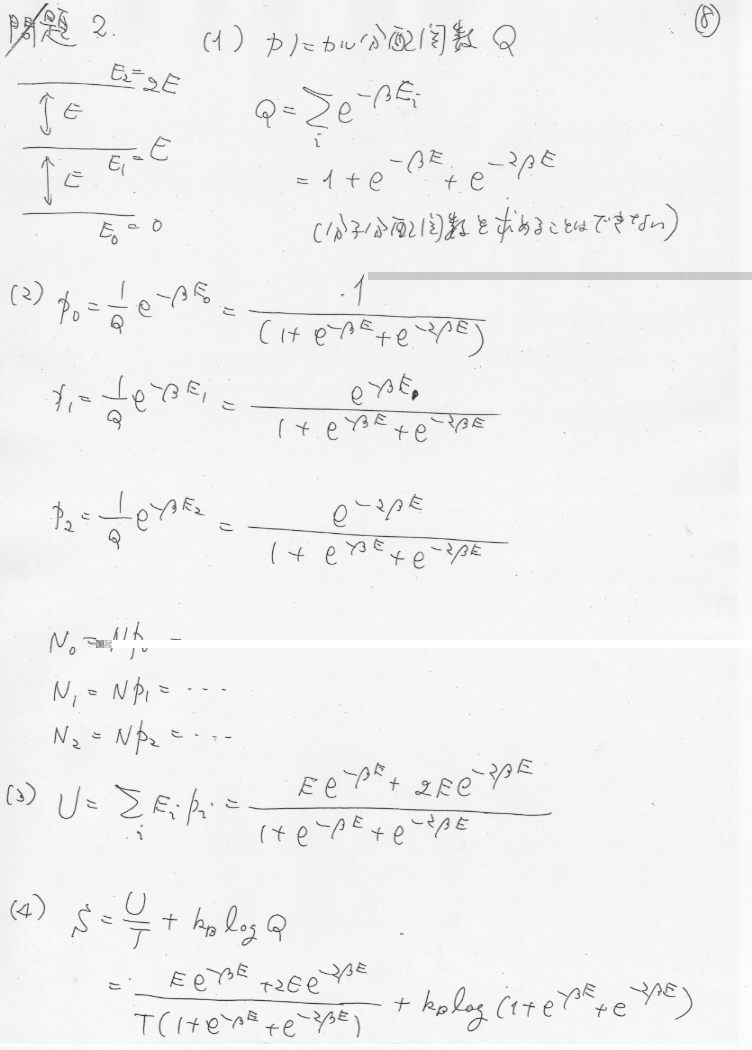 問題 2.
⑧
(1) カノニカル分配関数 Q
E₂=2E
E
E₁=E
E
E₀=0
Q=∑ᵢ e^{-βEᵢ}
= 1+e^{-βE}+e^{-2βE}
(分子分配関数を求めることはできない)
(2) p₀=1/Q e^{-βE₀}=1/(1+e^{-βE}+e^{-2βE})
p₁=1/Q e^{-βE₁}=e^{-βE}/1+e^{-βE}+e^{-2βE}
p₂=1/Q e^{-βE₂}=e^{-2βE}/1+e^{-βE}+e^{-2βE}
N₀=Np₀
N₁=Np₁=···
N₂=Np₂=···
(3) U=∑ᵢ Eᵢpᵢ=Ee^{-βE}+2Ee^{-2βE}/1+e^{-βE}+e^{-2βE}
(4) S=U/T+k_B log Q
=Ee^{-βE}+2Ee^{-2βE}/T(1+e^{-βE}+e^{-2βE})+k_B log(1+e^{-βE}+e^{-2βE})